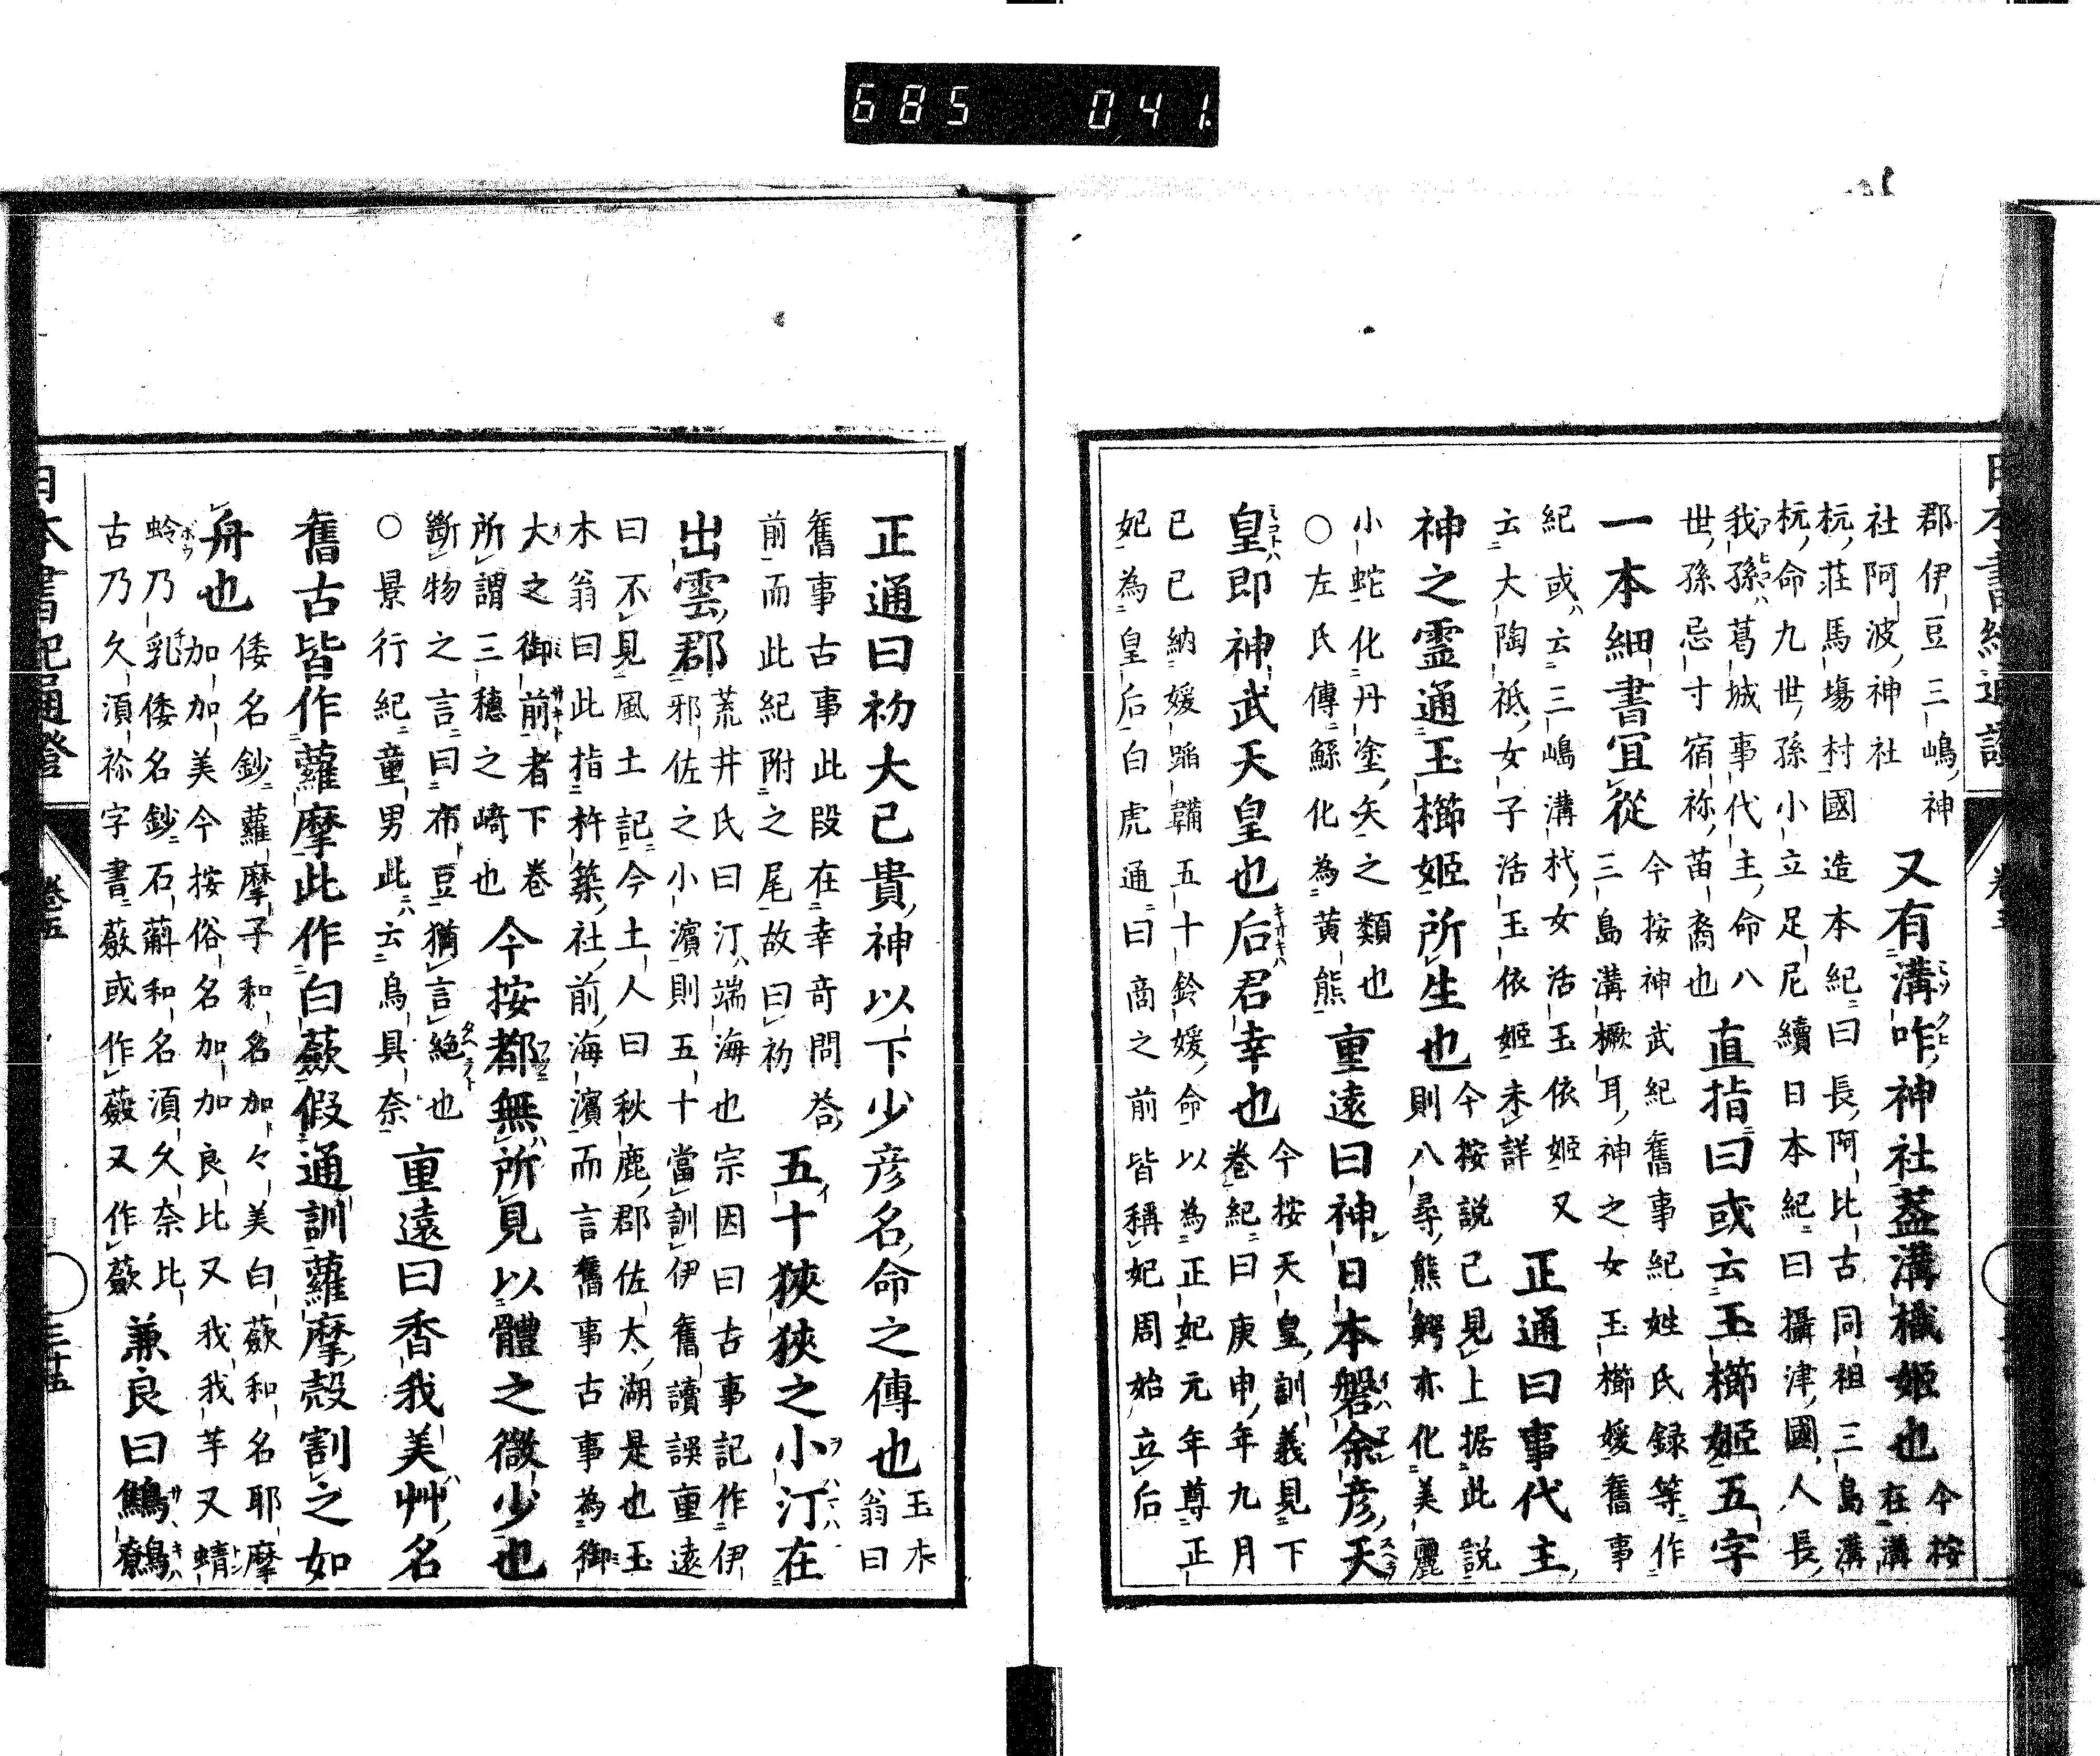 685 041
郡伊豆三嶋神
社阿波神社
又有溝咋神社蓋溝樴姬也
今按
在溝
杭莊馬塲村國造本紀曰長阿比古同祖三島溝
杭命九世孫小立足尼續日本紀曰攝津國人長
我孫葛城事代主命八
世孫忌寸宿祢苗裔也
直指曰或云玉櫛姬五字
一本細書宜從
今按神武紀舊事紀姓氏録等作
三島溝橛耳神之女玉櫛媛舊事
紀或云三嶋溝杙女活玉依姬又
云大陶祗女子活玉依姬未詳
正通曰事代主
神之霊通玉櫛姬所生也
今按說已見上据此說
則八尋熊鰐亦化美麗
小蛇化丹塗矢之類也
○左氏傳鯀化為黄熊
重遠曰神日本磐余彦天
皇即神武天皇也后君幸也
今按天皇訓義見下
卷紀曰庚申年九月
己巳納媛蹈鞴五十鈴媛命以為正妃元年尊正
妃為皇后白虎通曰商之前皆稱妃周始立后
正通曰初大己貴神以下少彦名命之傳也
玉木
翁曰
舊事古事此段在幸奇問荅
前而此紀附之尾故曰初
五十狹狹之小汀在
出雲郡
荒井氏曰汀端海也宗因曰古事記作伊
邪佐之小濱則五十當訓伊舊讀誤重遠
曰不見風土記今土人曰秋鹿郡佐太湖是也玉
木翁曰此指杵築社前海濱而言舊事古事為御
大之御前者下卷
所謂三穗之﨑也
今按都無所見以體之微少也
斷物之言曰布豆猶言絶也
○景行紀童男此云烏具奈
重遠曰香我美艸名
舊古皆作蘿摩此作白蘞假通訓蘿摩殼割之如
舟也
倭名鈔蘿摩子和名加々美白蘞和名耶摩
加加美今按俗名加加良比又我我芋又蜻
蛉乃乳倭名鈔石䕛和名須久奈比
古乃久須祢字書蘞或作蘝又作蘞
兼良曰鷦鷯
日本書紀通證
卷五
三十五